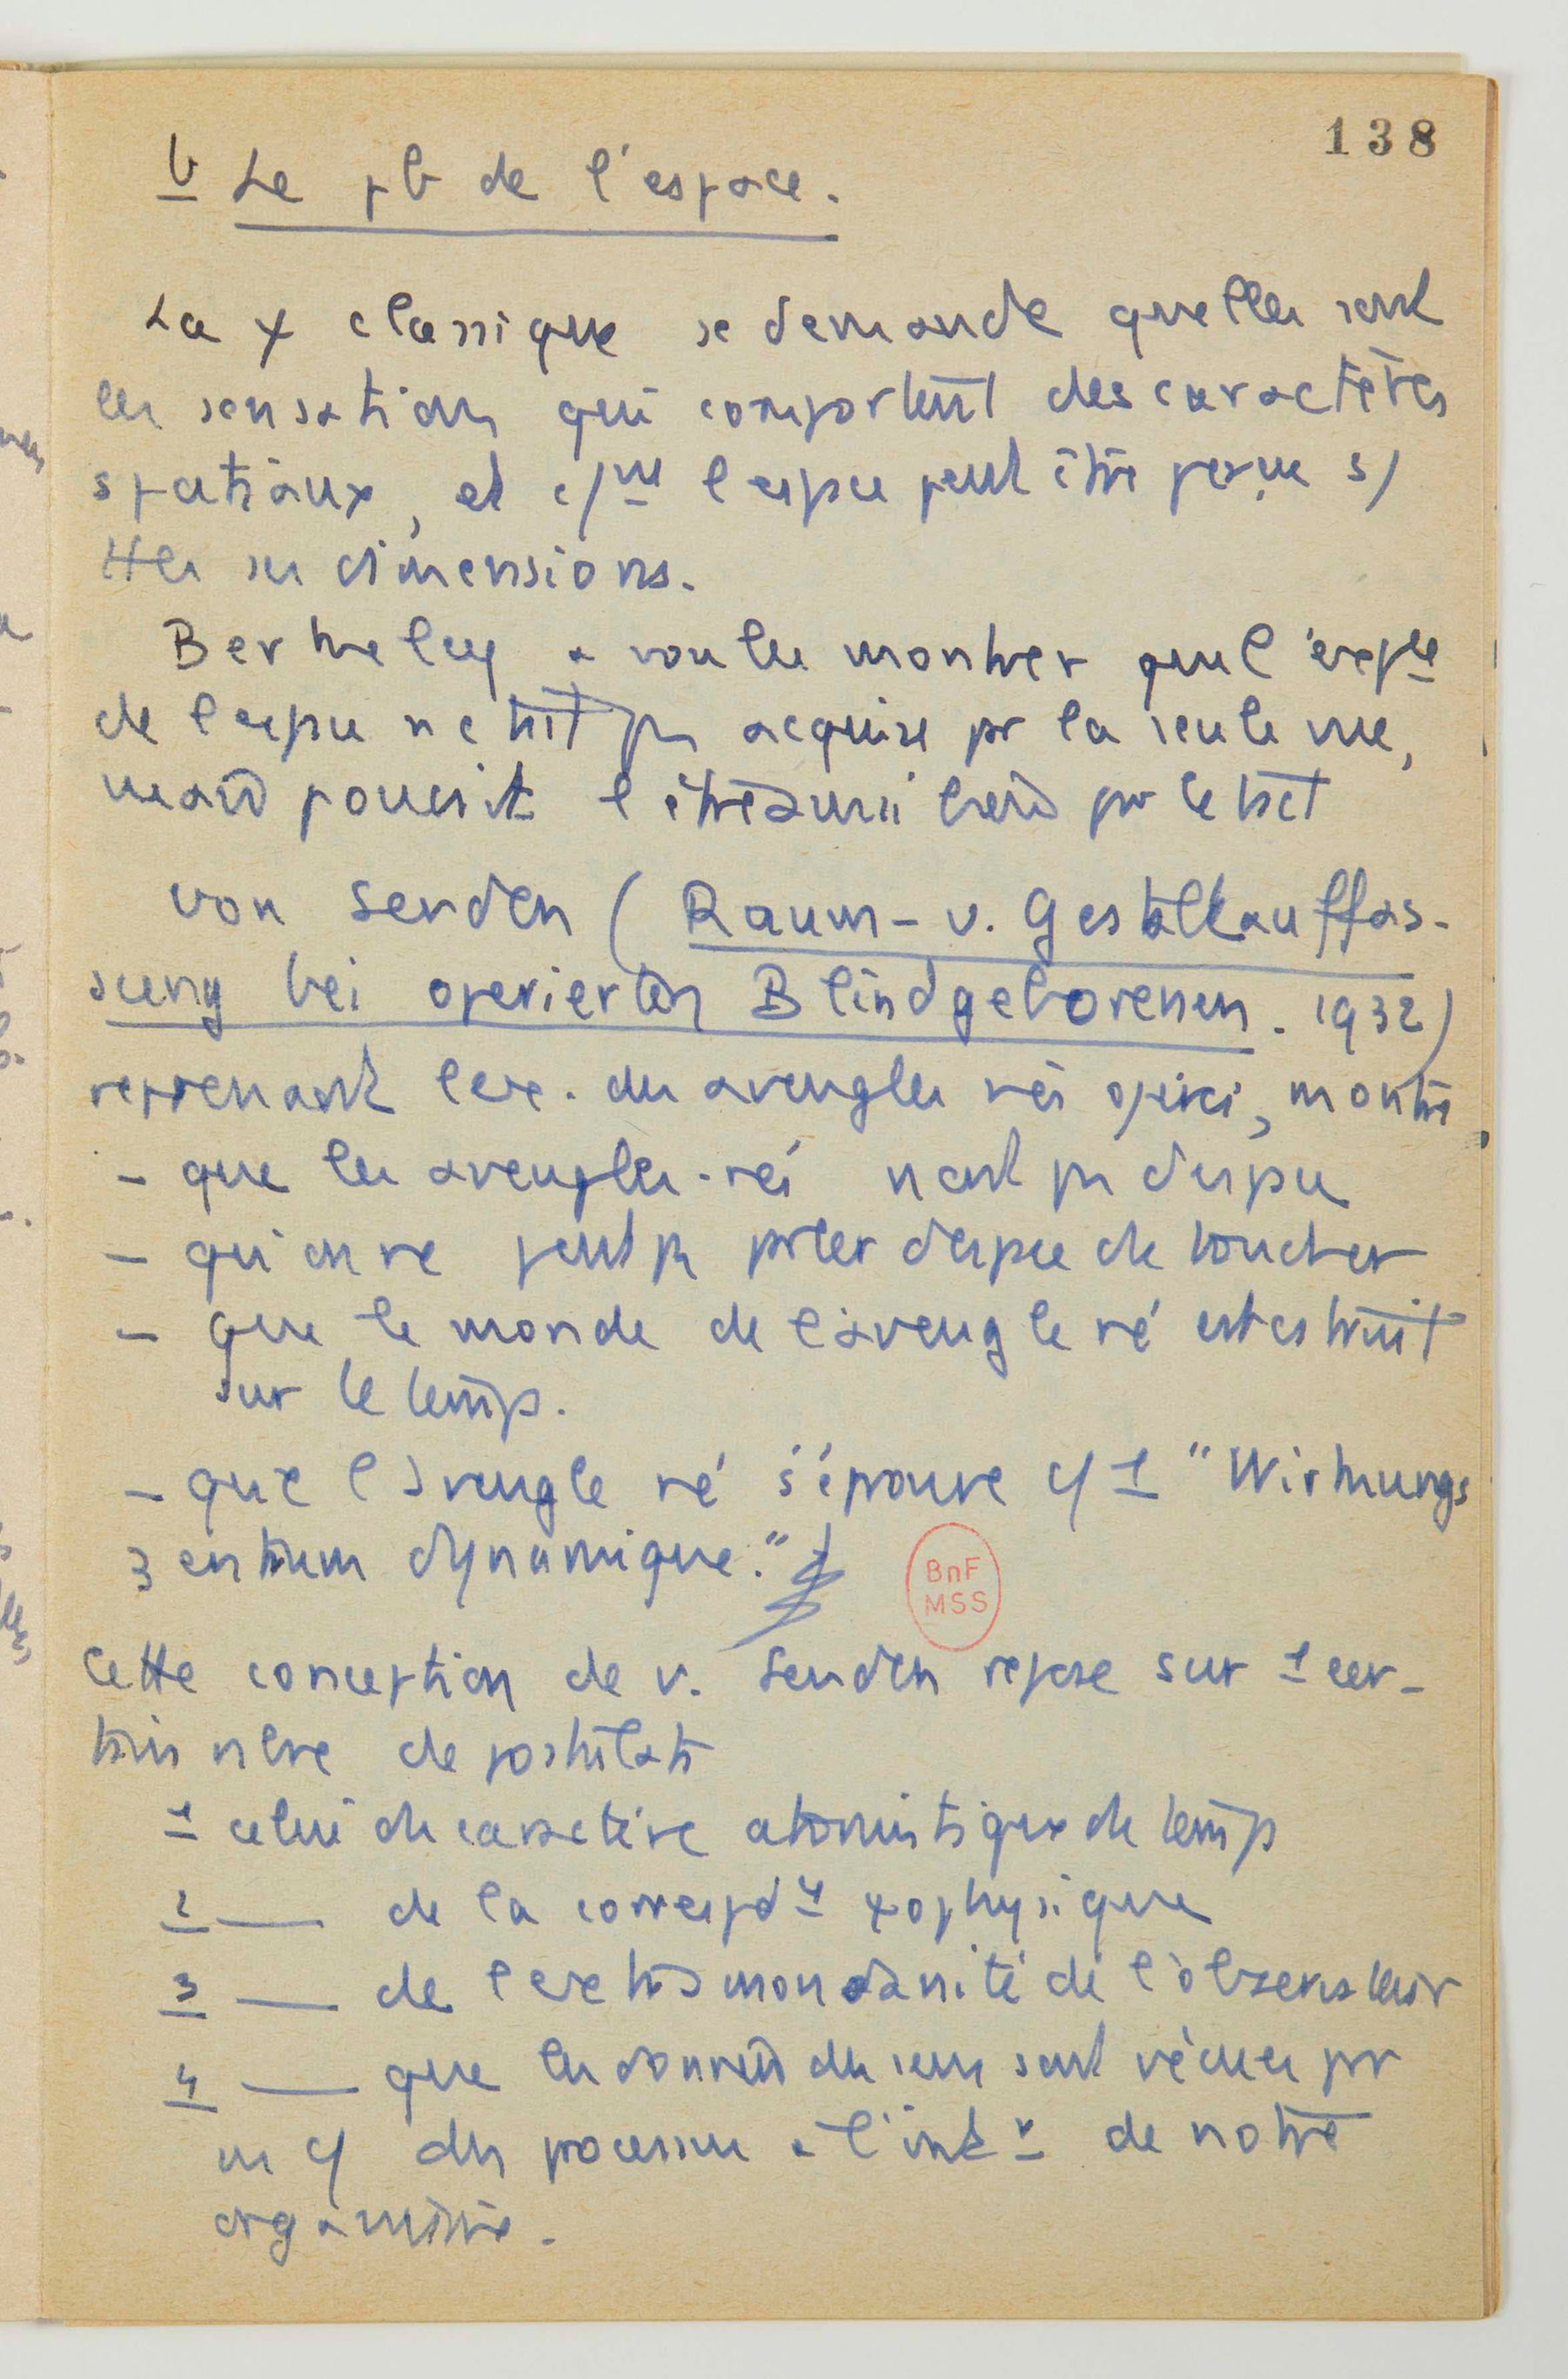 138
b Le pb de l'espace.
La ψ classique se demande quelles sont
les sensations qui comportent des caractères
spatiaux, et c/mt l'espace peut être perçue s/
ttes ses dimensions.
Berkeley a voulu montrer que l'exp ce
de l'espace n'était pas acquise pr la seule vue,
mais pouvait l'être aussi bien par le tact
von Senden (Raum- u. Gestaltauffas-
sung bei operierten Blindgeborenen. 1932)
reprenant l'ex. des aveugles nés opérés, montre
- que les aveugles-nés n'ont pas d'espace
- qu'on ne peut pas parler d'espace du toucher
- que le monde de l'aveugle né est construit
sur le temps.
- que l'aveugle né s'éprouve c/ 1 "Wirkungs
zentrum dynamique."
BnF
MSS
Cette conception de v. Senden repose sur 1 cer-
tain nbre de postulats
1 celui du caractère atomistique du temps
2 — de la correspd ce ψophysique
3 — de l'extramondanité de l'observateur
4 — que les données des sens sont vécues pr
ns c/ des processus à l'int r de notre
organisme.